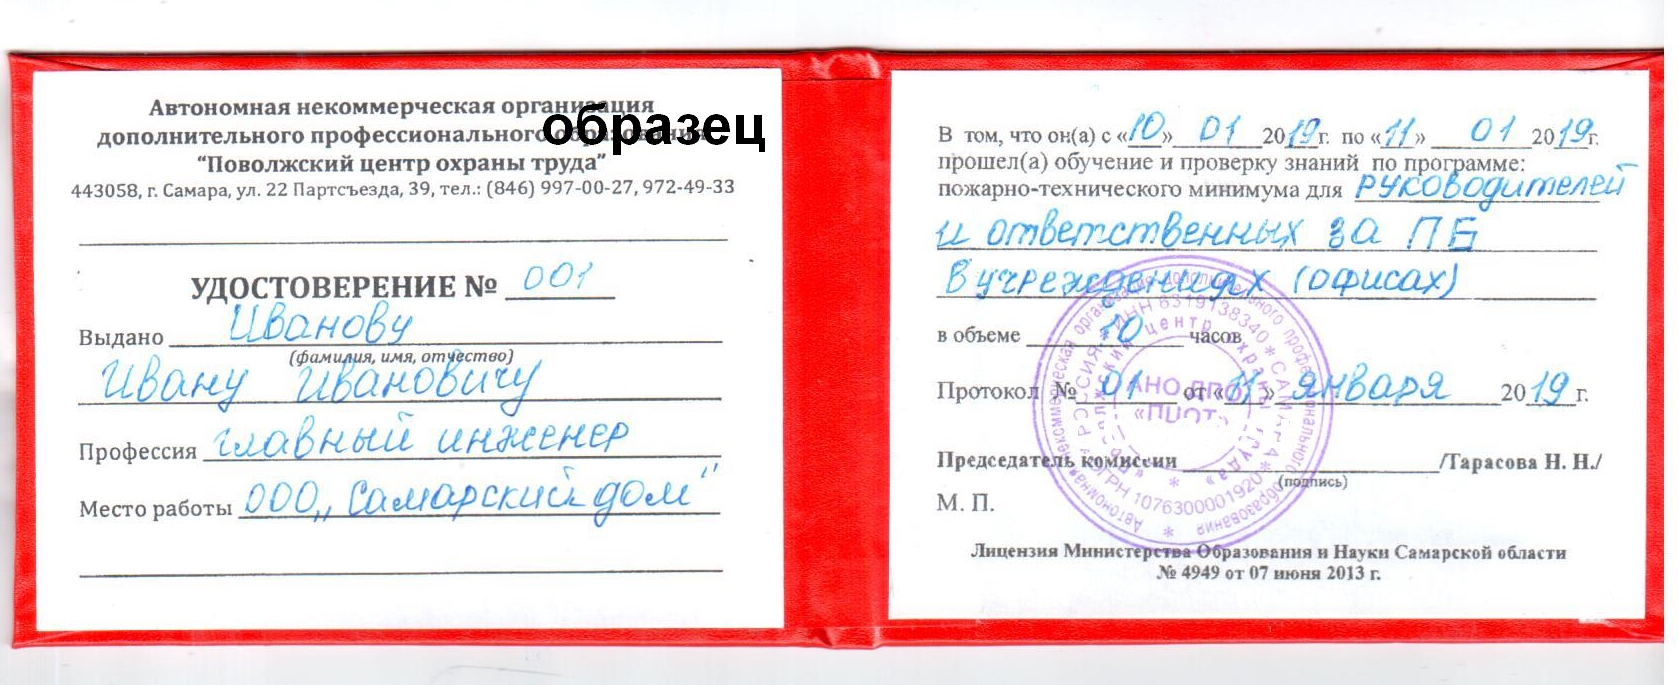 Автономная некоммерческая организация
дополнительного профессионального образования
образец
“Поволжский центр охраны труда”
443058, г. Самара, ул. 22 Партсъезда, 39, тел.: (846) 997-00-27, 972-49-33
УДОСТОВЕРЕНИЕ № 001
Выдано Иванову
(фамилия, имя, отчество)
Ивану Ивановичу
Профессия главный инженер
Место работы ООО „Самарский дом"
В том, что он(а) с «10» 01 2019г. по «11» 01 2019г.
прошел(а) обучение и проверку знаний по программе:
пожарно-технического минимума для руководителей
и ответственных за ПБ
в учреждениях (офисах)
в объеме 10 часов
Протокол № 01 от «11» января 2019 г.
Председатель комиссии /Тарасова Н. Н./
(подпись)
М. П.
Лицензия Министерства Образования и Науки Самарской области
№ 4949 от 07 июня 2013 г.
Автономная некоммерческая организация дополнительного профессионального образования
РОССИЯ * ИНН 6319138340 * САМАРА * ОГРН 1076300001920
центр охраны труда»
АНО ДПО
«ПЦОТ»